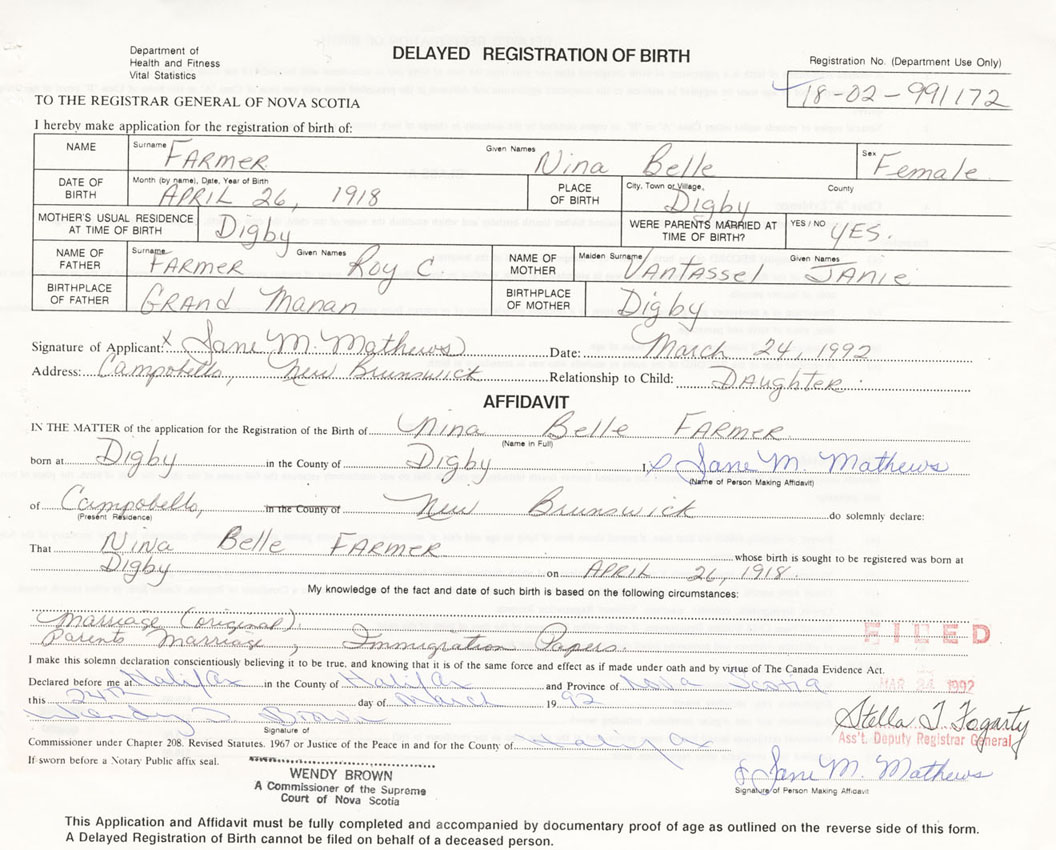 Department of
Health and Fitness
Vital Statistics
DELAYED REGISTRATION OF BIRTH
Registration No. (Department Use Only)
18-02-991172
TO THE REGISTRAR GENERAL OF NOVA SCOTIA
I hereby make application for the registration of birth of:
NAME Surname FARMER Given Names Nina Belle Sex Female
DATE OF BIRTH Month (by name), Date, Year of Birth APRIL 26, 1918 PLACE OF BIRTH City, Town or Village, Digby County
MOTHER'S USUAL RESIDENCE AT TIME OF BIRTH Digby WERE PARENTS MARRIED AT TIME OF BIRTH? YES / NO YES.
NAME OF FATHER Surname FARMER Given Names Roy C. NAME OF MOTHER Maiden Surname VanTassel Given Names JANIE
BIRTHPLACE OF FATHER GRAND Manan BIRTHPLACE OF MOTHER Digby
Signature of Applicant: x Jane M. Mathews Date: March 24, 1992
Address: Campobello, New Brunswick Relationship to Child: DAUGHTER.
AFFIDAVIT
IN THE MATTER of the application for the Registration of the Birth of Nina Belle FARMER
(Name in Full)
born at Digby in the County of Digby I, Jane M. Mathews
(Name of Person Making Affidavit)
of Campobello, in the County of New Brunswick do solemnly declare:
(Present Residence)
That Nina Belle FARMER whose birth is sought to be registered was born at
Digby on APRIL 26, 1918.
My knowledge of the fact and date of such birth is based on the following circumstances:
Marriage (original),
Parents Marriage, Immigration Papers.
FILED
I make this solemn declaration conscientiously believing it to be true, and knowing that it is of the same force and effect as if made under oath and by virtue of The Canada Evidence Act.
Declared before me at Halifax in the County of Halifax and Province of Nova Scotia
MAR 24 1992
this 24th day of March 1992
Wendy J Brown
Signature of
Stella T. Fogarty
Ass't. Deputy Registrar General
Commissioner under Chapter 208. Revised Statutes. 1967 or Justice of the Peace in and for the County of Halifax
If sworn before a Notary Public affix seal.
WENDY BROWN
A Commissioner of the Supreme
Court of Nova Scotia
Jane M. Mathews
Signature of Person Making Affidavit
This Application and Affidavit must be fully completed and accompanied by documentary proof of age as outlined on the reverse side of this form.
A Delayed Registration of Birth cannot be filed on behalf of a deceased person.